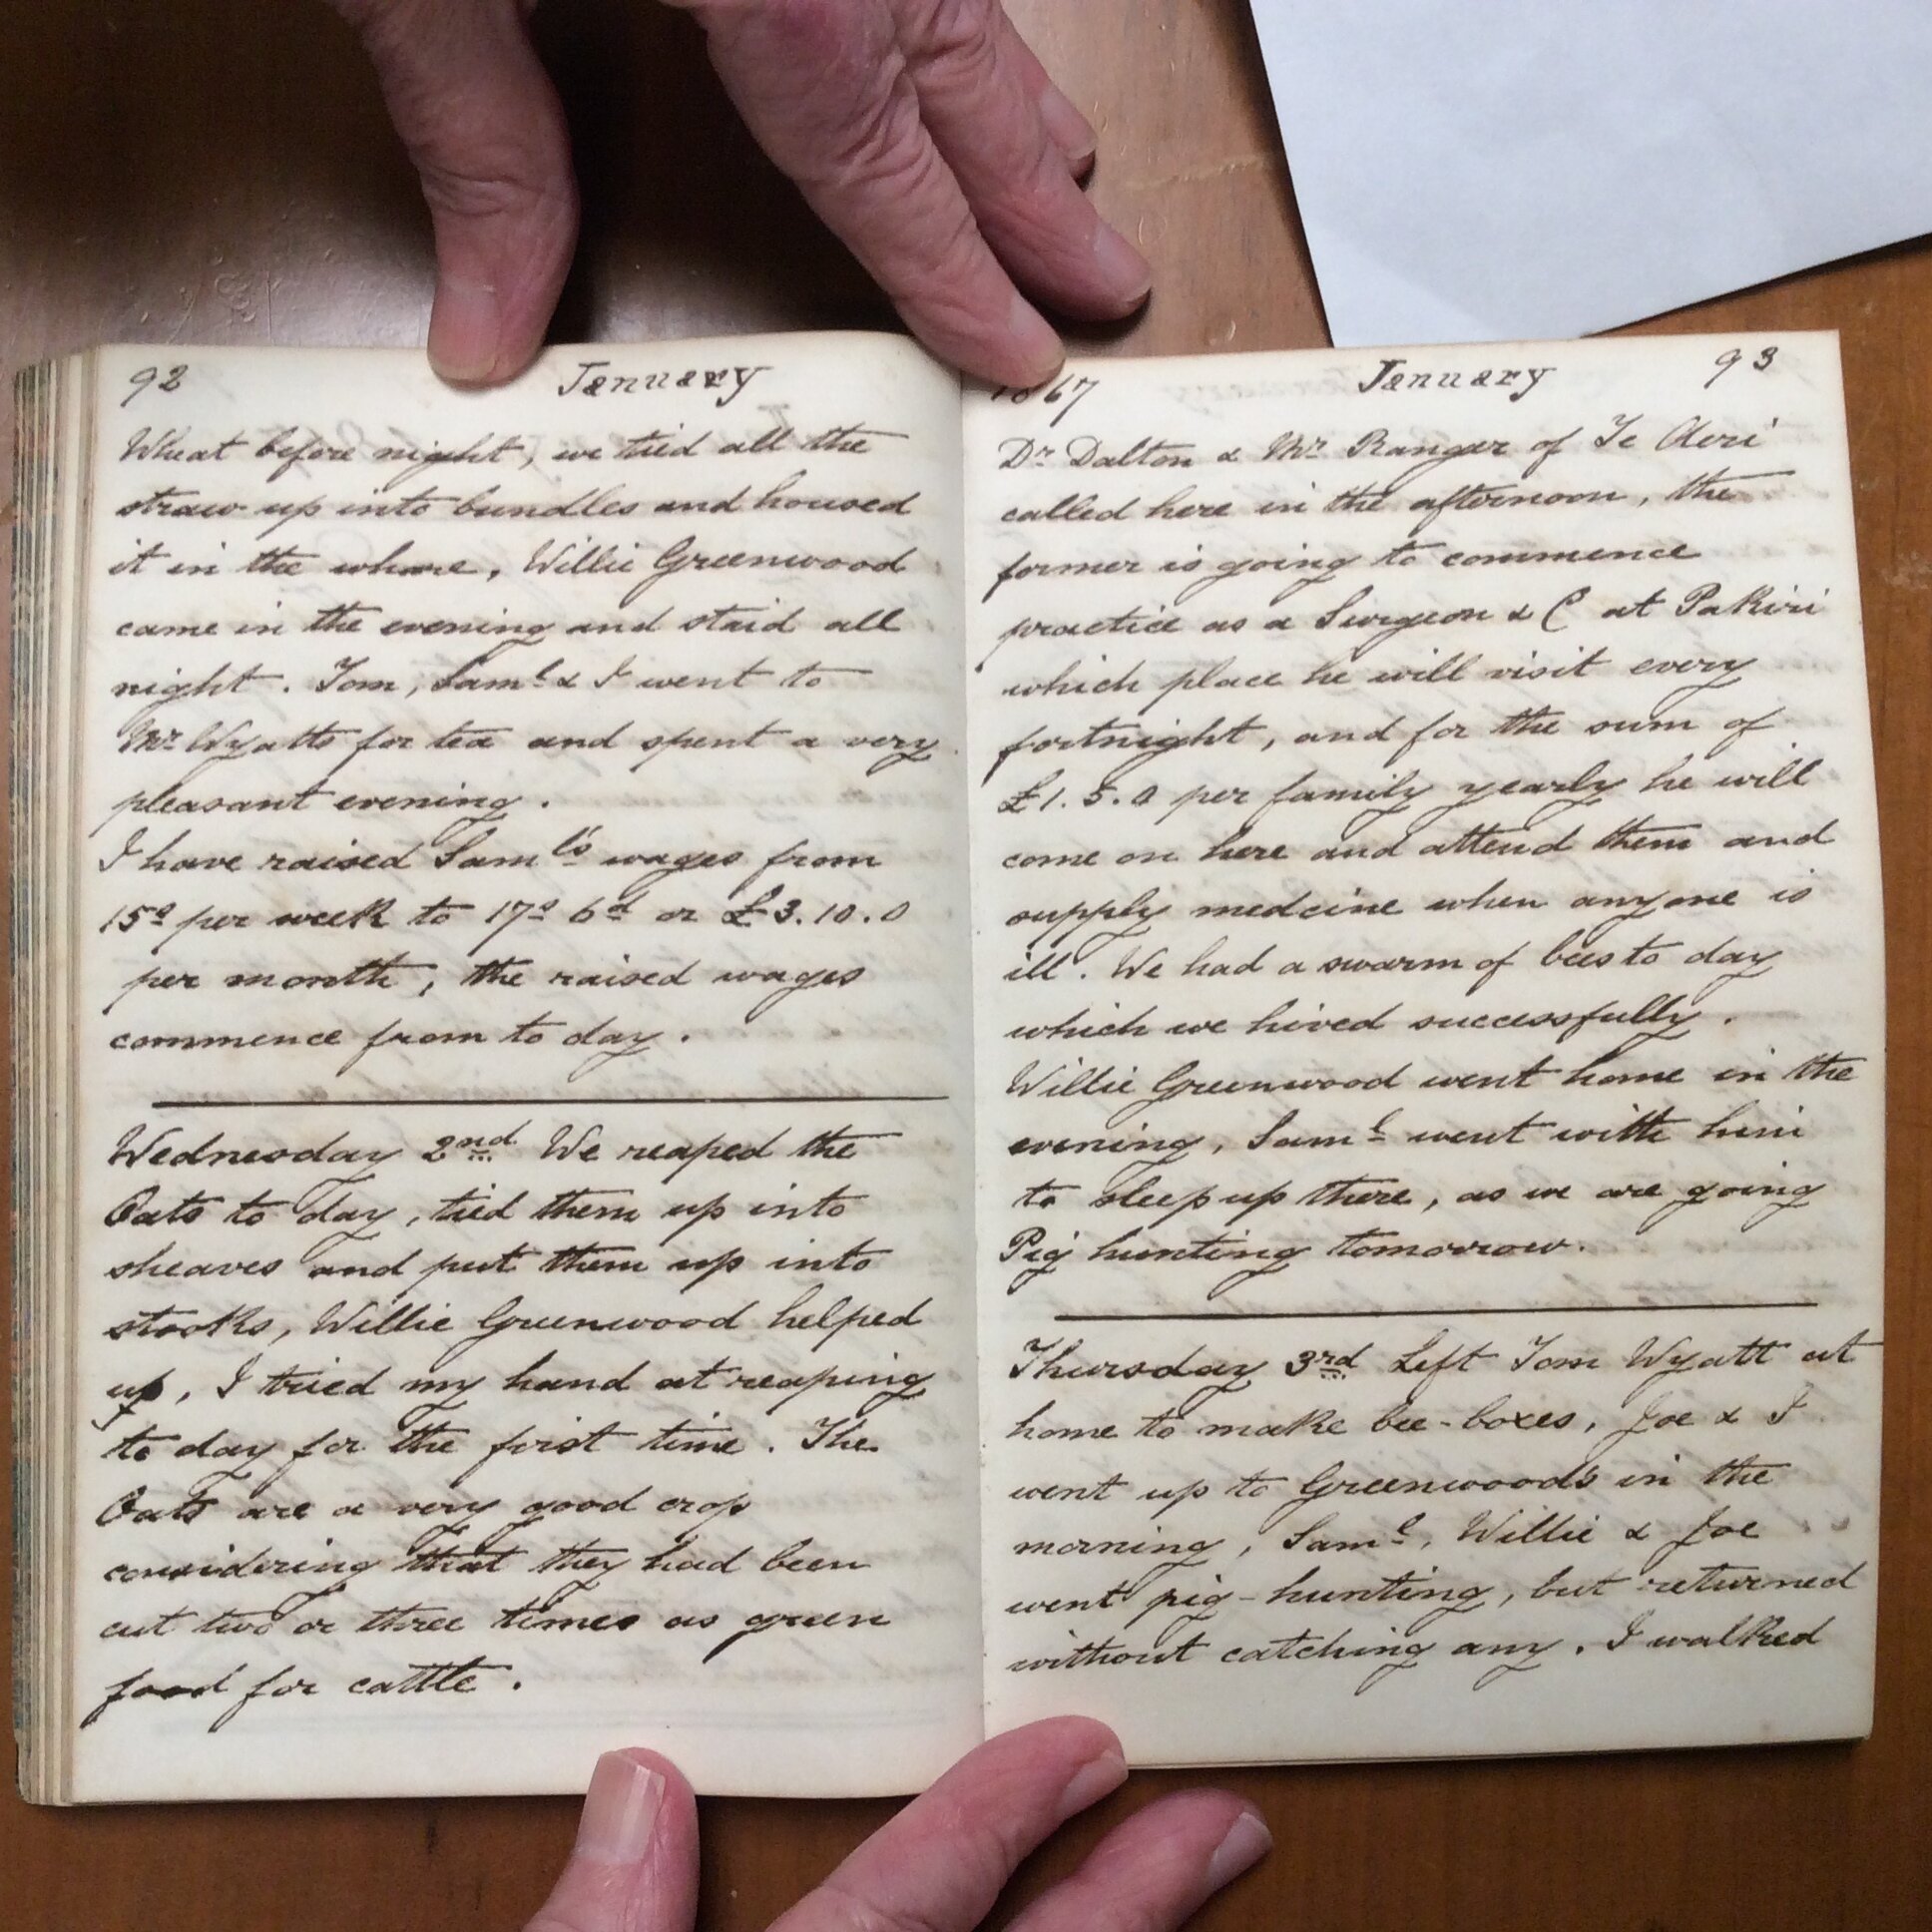 92 January
Wheat before night, we tied all the
straw up into bundles and housed
it in the whare, Willie Greenwood
came in the evening and staid all
night. Tom, Saml & I went to
Mr Wyatts for tea and spent a very
pleasant evening.
I have raised Saml's wages from
15s per week to 17s 6d or £3.10.0
per month, the raised wages
commence from to day.
Wednesday 2nd We reaped the
Oats to day, tied them up into
sheaves and put them up into
stooks, Willie Greenwood helped
up, I tried my hand at reaping
to day for the first time. The
Oats are a very good crop
considering that they had been
cut two or three times as green
food for cattle.
1867 January 93
Dr Dalton & Mr Ranger of Te Aeri
called here in the afternoon, the
former is going to commence
practice as a Surgeon & C at Pakiri
which place he will visit every
fortnight, and for the sum of
£1.5.0 per family yearly he will
come on here and attend them and
supply medcine when anyone is
ill. We had a swarm of bees to day
which we hived successfully.
Willie Greenwood went home in the
evening, Saml went with him
to sleep up there, as we are going
Pig hunting tomorrow.
Thursday 3rd Left Tom Wyatt at
home to make bee-boxes, Joe & I
went up to Greenwood's in the
morning, Saml, Willie & Joe
went pig-hunting, but returned
without catching any. I walked